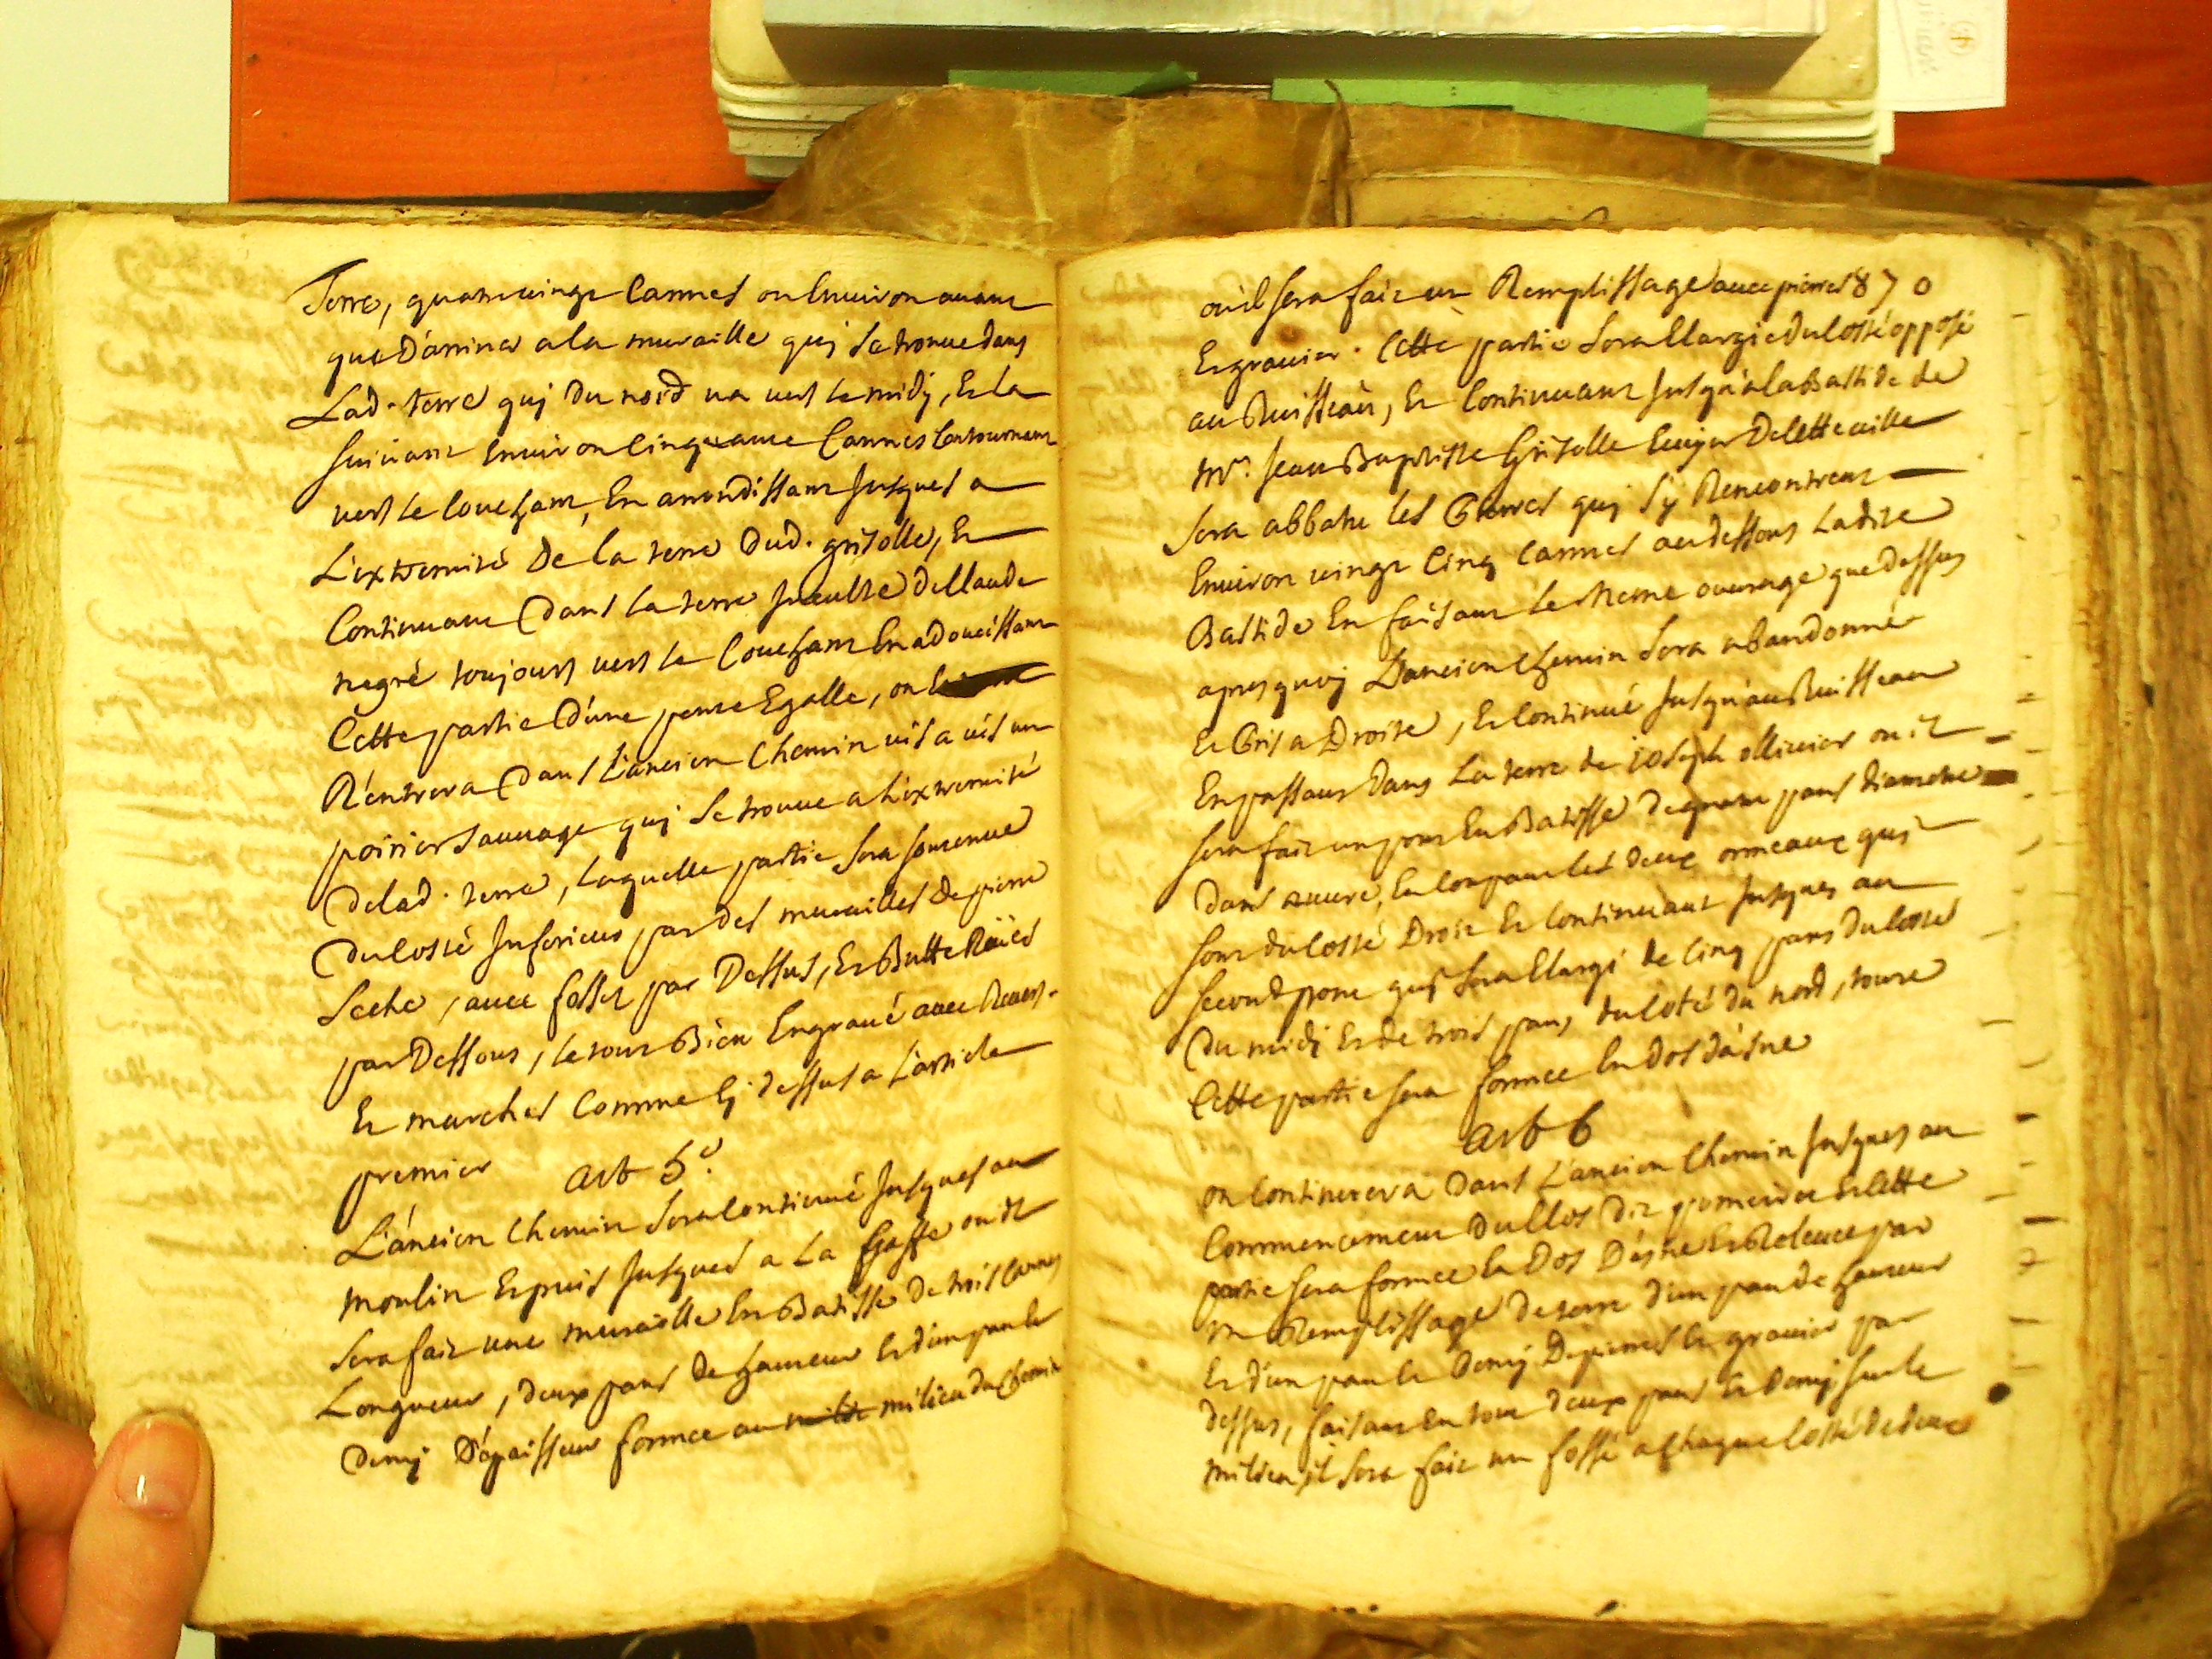 Terre, quatrevingt Cannes ou Environ avant
que D'arriver a la muraille quj se trouve dans
Lad. terre quj du nord va vers le midj, Et la
suivant Environ Cinquante Cannes Contournant
vers le Couchant, En arrondissant Jusques a
L'extremité De la terre dud. grisolle, Et
Continuant Dans la terre Inculte de Claude
negré toujours vers le Couchant En adoucissant
Cette partie D'une pente Egalle, on
R'entrera Dans L'ancien Chemin vis a vis un
poirier sauvage quj se trouve a L'extremité
Delad. terre, Laquelle partie sera soutenue
Du costé Inferieur par des murailles de pierre
seche, avec fossez par Dessus, Et Butte Roües
par Dessous, le tout Bien Engravé avec Revers.
Et marches Comme Cj dessus a L'article
premier art 5e.
L'ancien Chemin sera Continué Jusques au
moulin Et puis Jusques a La ou il
sera fait une muraille En Batisse de trois Cannes
Longueur, deux pans de hauteur Et d'un pan Et
Demj D'épaisseur formée au milieu du Chemin
ou il sera fait un Remplissage avec pierres 870
Et gravier. Cette partie sera Elargie du Costé opposé
au Ruisseau, Et Continuant Jusqu'a la Bastide de
Mr. Jean Baptiste Grisolle Ecuyer De Cette ville
sera abbatu les Pierres quj s'y Rencontrent
Environ vingt Cinq Cannes au dessous Ladite
Bastide En faisant le meme ouvrage que dessus
apres quoj L'ancien Chemin sera abandonné
Et Pris a Droite, Et Continué Jusqu'au Ruisseau
En passant Dans La terre de joseph ollivier ou il
sera fait un pont En Batisse de quatre pans diametre
Dans œuvre, En Coupant les deux ormeaux quj
sont du Costé Droit Et Continuant Jusques au
second pont quj sera Elargi de Cinq pans du Costé
Du midj Et de trois pans du Coté du nord, toute
Cette partie sera formée En dos d'asne
art 6
on Continuera Dans L'ancien Chemin Jusques au
Commencement du Clos dit Et Cette
partie sera formée En Dos D'asne Et Relevée par
un Remplissage de terre d'un pan de hauteur
Et d'un pan Et Demj De pierres Et gravier par
dessus, faisant En tout deux pans Et Demj sur le
milieu, il sera fait un fossé a Chaque Costé de deux